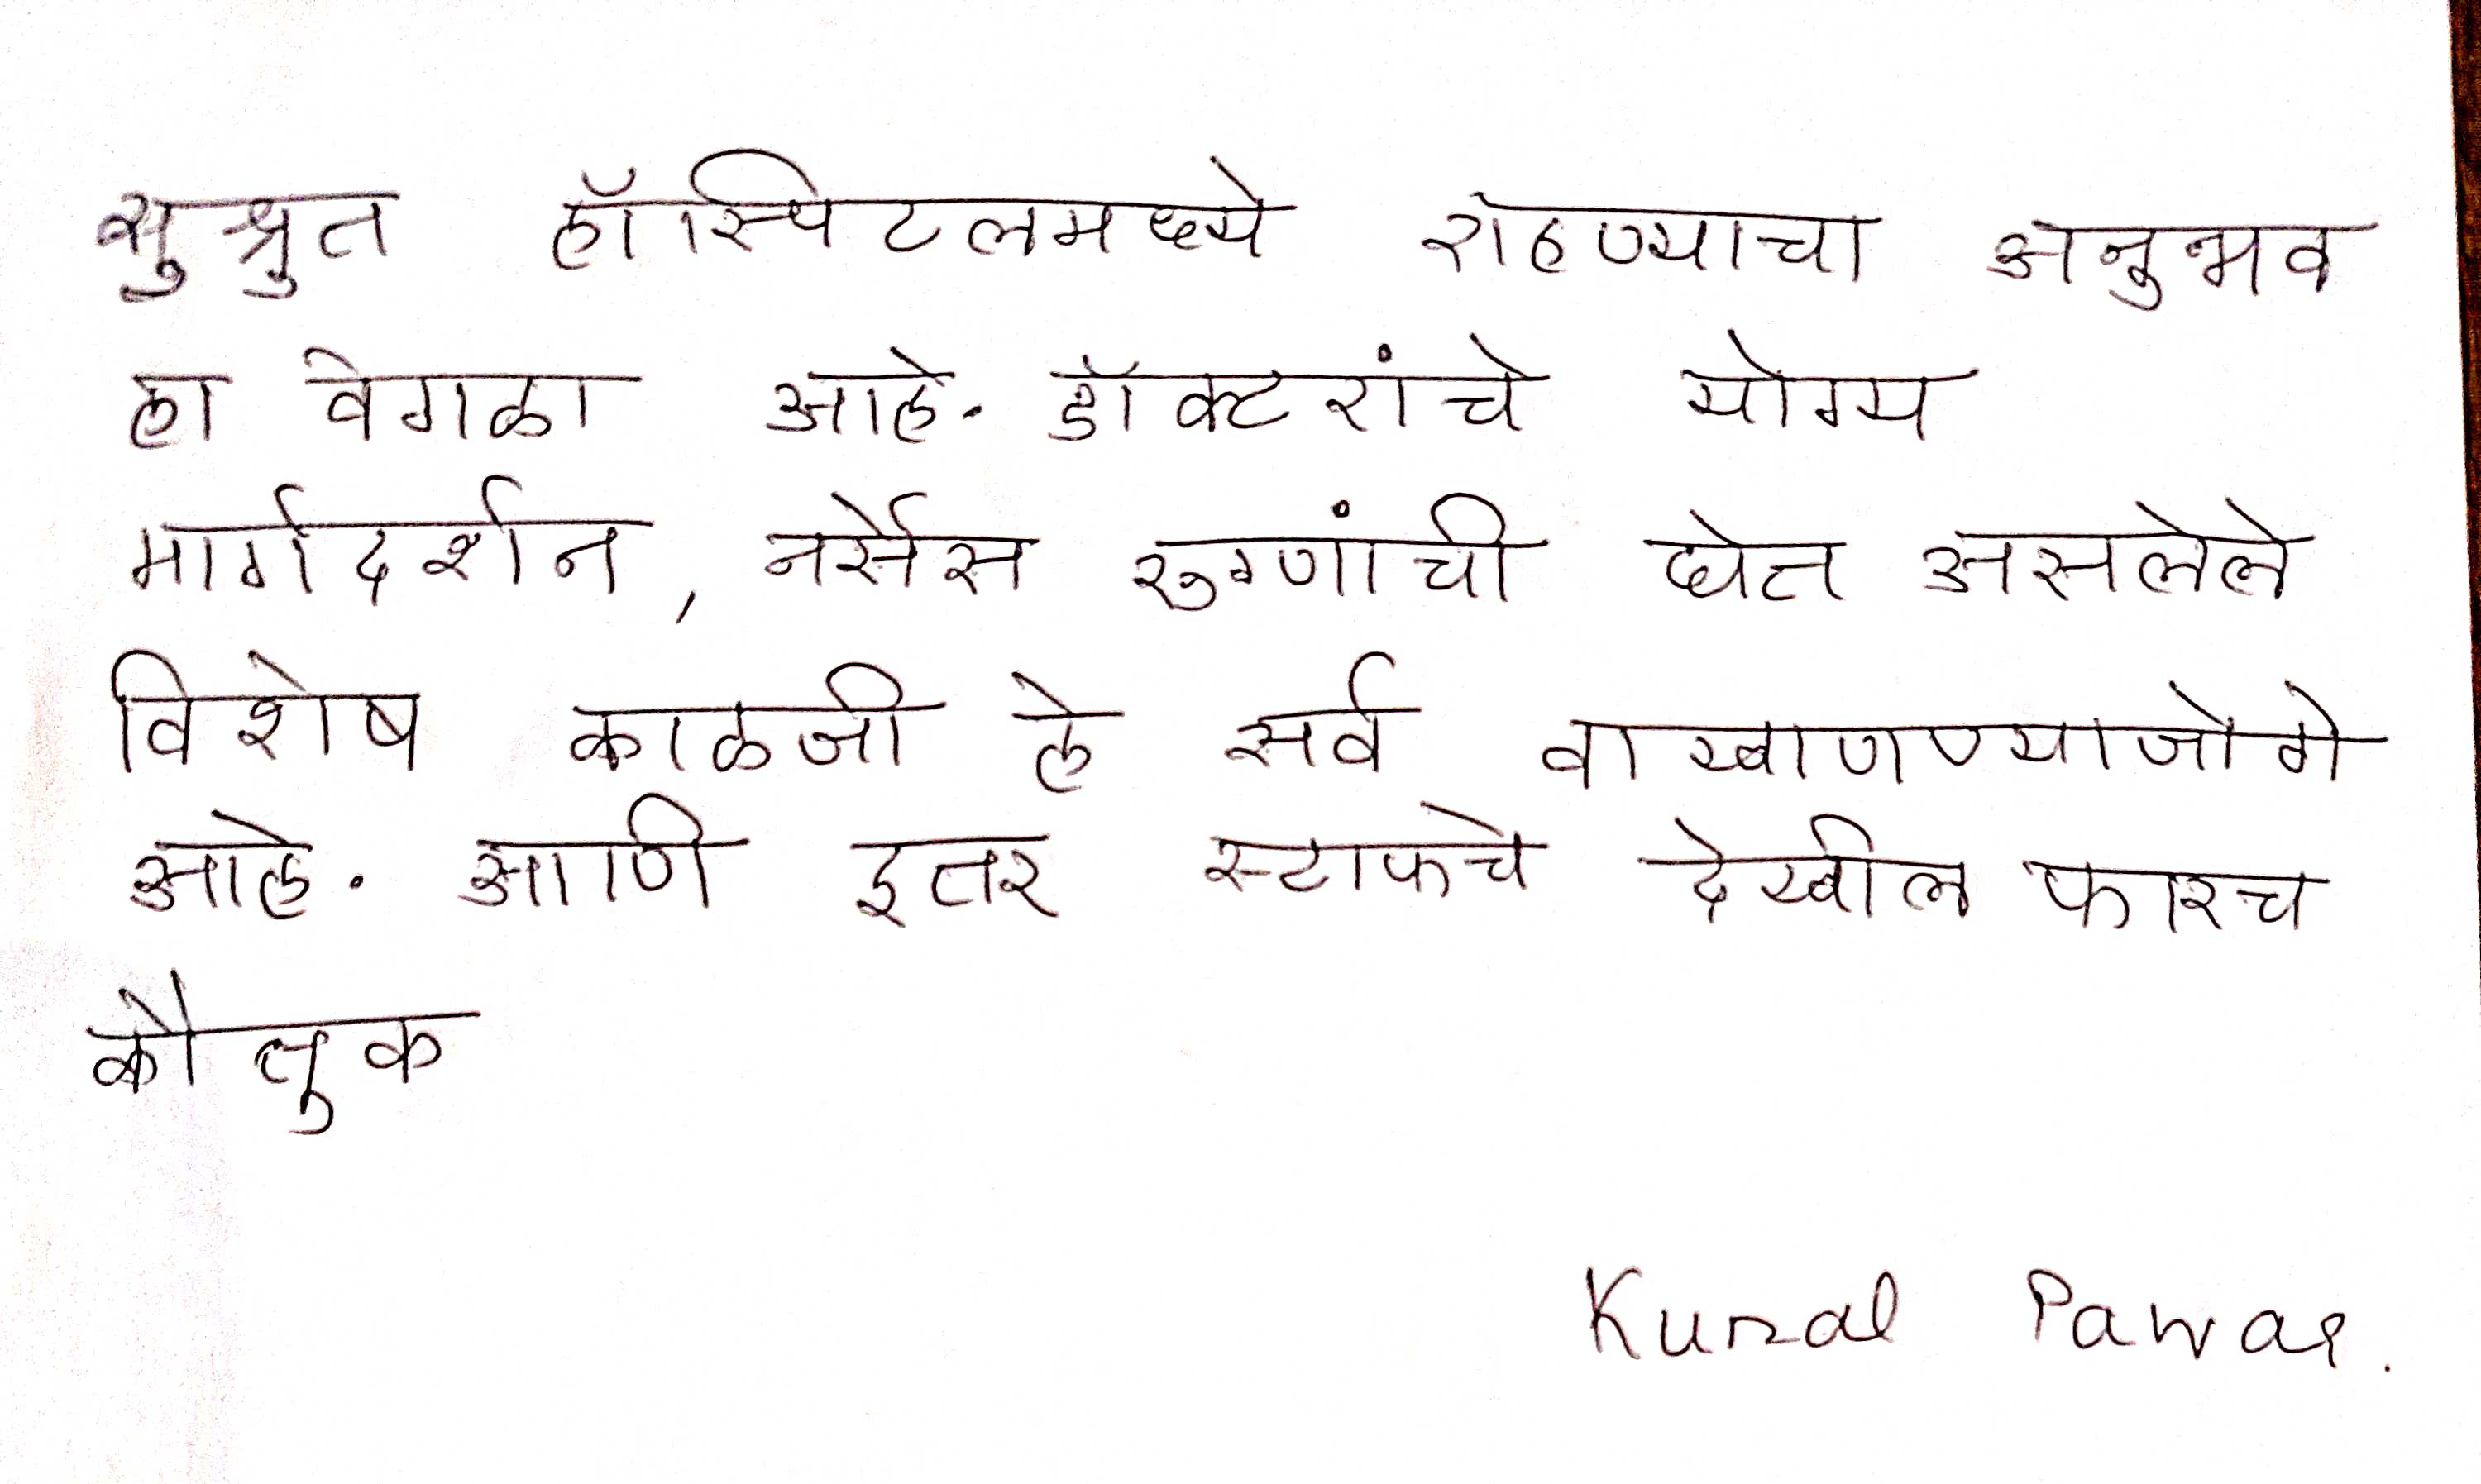 सुश्रुत हॉस्पिटलमध्ये राहण्याचा अनुभव
हा वेगळा आहे. डॉक्टरांचे योग्य
मार्गदर्शन, नर्सेस रुग्णांची घेत असलेले
विशेष काळजी हे सर्व वाखाणण्याजोगे
आहे. आणि इतर स्टाफचे देखील फारच
कौतुक
Kunal Pawar.